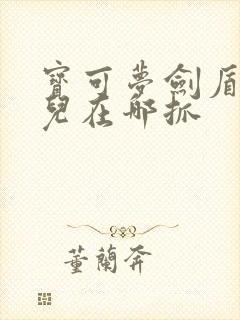 寶可夢劍盾
兒在哪抓
董蘭奔